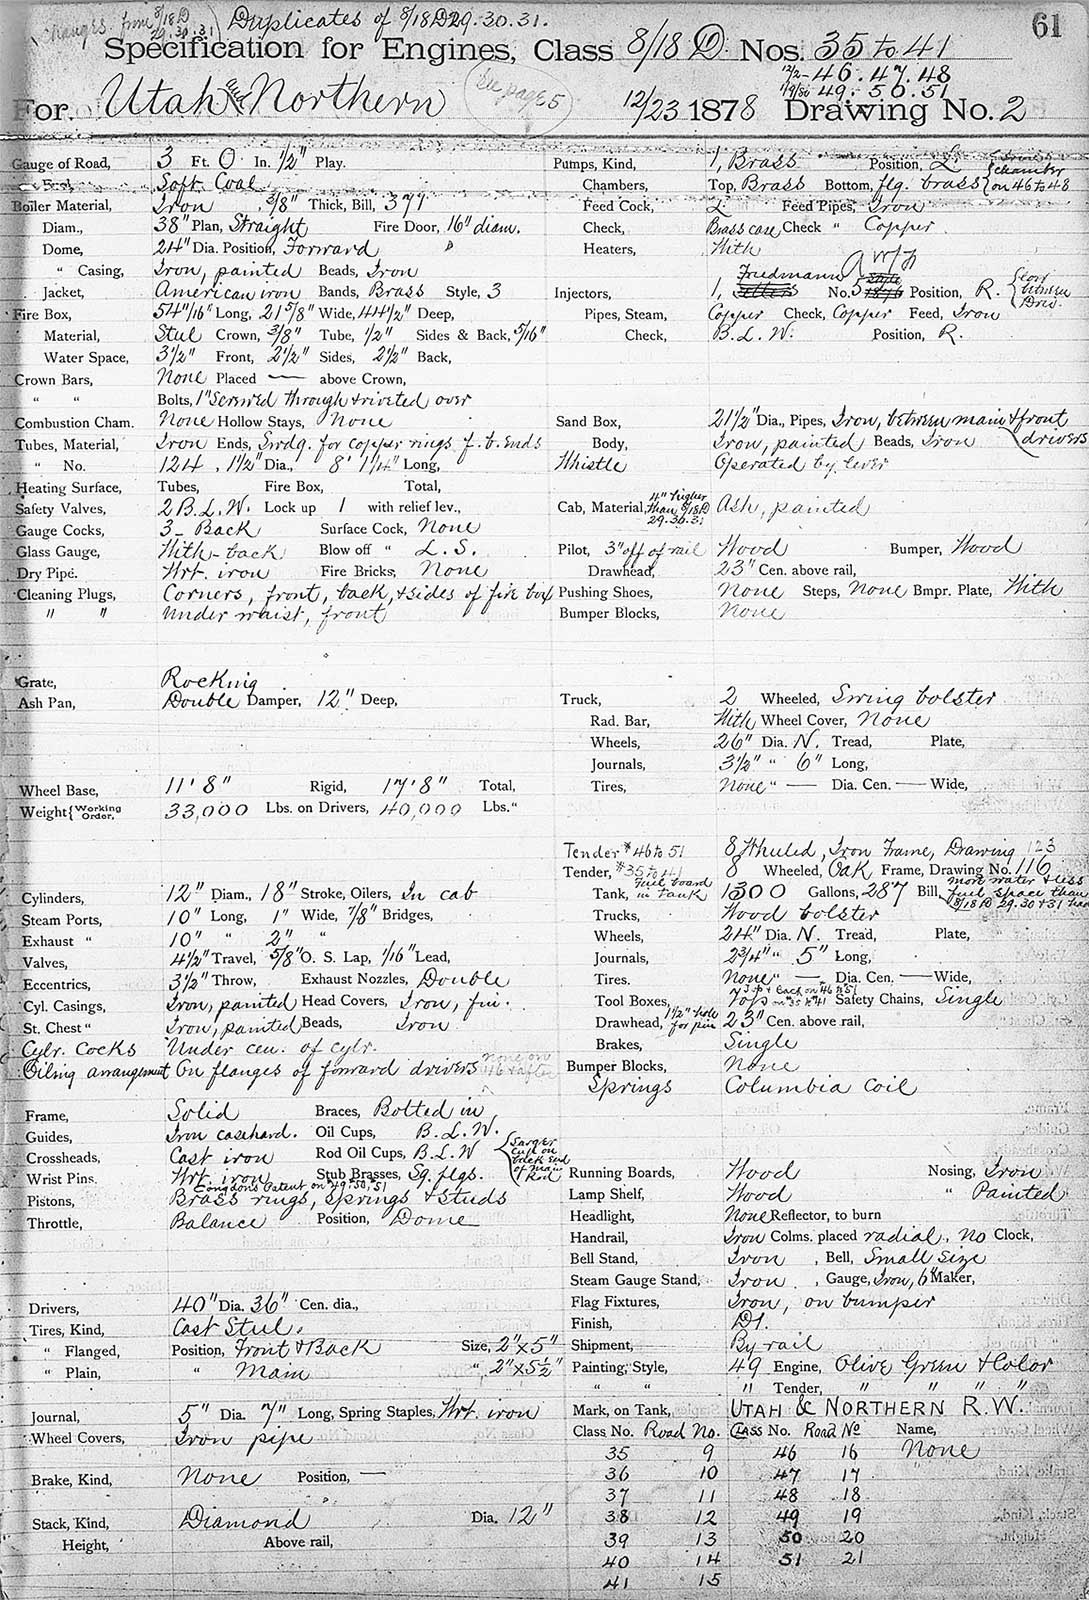 Changes from 8/18 D 29.30.31
Duplicates of 8/18 D 29.30.31.
61
Specification for Engines, Class 8/18 D Nos. 35 to 41
12/2- 46.47.48
1/9/80 49.50.51
For. Utah and Northern
See page 5
12/23 1878 Drawing No. 2
Gauge of Road, 3 Ft. 0 In. 1/2" Play.
Fuel, Soft Coal
Boiler Material, Iron 3/8" Thick, Bill, 371
Diam., 38" Plan, Straight Fire Door, 16" diam.
Dome, 24" Dia. Position, Forward "
" Casing, Iron, painted Beads, Iron
Jacket, American iron Bands, Brass Style, 3
Fire Box, 54 11/16" Long, 21 5/8" Wide, 44 1/2" Deep,
Material, Steel Crown, 3/8" Tube, 1/2" Sides & Back, 5/16"
Water Space, 3 1/2" Front, 2 1/2" Sides, 2 1/2" Back,
Crown Bars, None Placed — above Crown,
" " Bolts, 1" Screwed through & riveted over
Combustion Cham. None Hollow Stays, None
Tubes, Material, Iron Ends, Swdg. for copper rings f. b. ends
" No. 124, 1 1/2" Dia., 8' 1 1/4" Long,
Heating Surface, Tubes, Fire Box, Total,
Safety Valves, 2 B.L.W. Lock up 1 with relief lev.,
Gauge Cocks, 3 - Back Surface Cock, None
Glass Gauge, With - back Blow off " L.S.
Dry Pipe. Wrt. iron Fire Bricks, None
Cleaning Plugs, Corners, front, back, & sides of fire box
" " Under waist, front
Grate, Rocking
Ash Pan, Double Damper, 12" Deep,
Wheel Base, 11' 8" Rigid, 17' 8" Total,
Weight { Working Order, 33,000 Lbs. on Drivers, 40,000 Lbs. "
Cylinders, 12" Diam., 18" Stroke, Oilers, In cab
Steam Ports, 10" Long, 1" Wide, 7/8" Bridges,
Exhaust " 10" " 2" "
Valves, 4 1/2" Travel, 5/8" O. S. Lap, 1/16" Lead,
Eccentrics, 3 1/2" Throw, Exhaust Nozzles, Double
Cyl. Casings, Iron, painted Head Covers, Iron, fin.
St. Chest " Iron, painted Beads, Iron
Cylr. Cocks Under cen. of cylr.
Oiling arrangement On flanges of forward drivers none on 46 & after
Frame, Solid Braces, Bolted in
Guides, Iron casehard. Oil Cups, B.L.W.
Crossheads, Cast iron Rod Oil Cups, B.L.W { Larger cup on back end of main rod
Wrist Pins. Wrt iron Stub Brasses, Sq. flgs.
Congdons Patent on 49.50.51
Pistons, Brass rings, springs & studs
Throttle, Balance Position, Dome
Drivers, 40" Dia. 36" Cen. dia.,
Tires, Kind, Cast Steel.
" Flanged, Position, Front & Back Size, 2" x 5"
" Plain, " Main " 2" x 5 1/2"
Journal, 5" Dia. 7" Long, Spring Staples, Wrt. iron
Wheel Covers, Iron pipe
Brake, Kind, None Position, —
Stack, Kind, Diamond Dia. 12"
Height, Above rail,
Pumps, Kind, 1, Brass Position, L.
Chambers, Top, Brass Bottom, flg. brass { chamber on 46 to 48
Feed Cock, L Feed Pipes, Iron
Check, Brass case Check " Copper.
Heaters, With
Friedmann
Injectors, 1, Sellers No. 5 Position, R.
Pipes, Steam, Copper Check, Copper Feed, Iron
Check, B.L.W. Position, R.
Sand Box, 21 1/2" Dia., Pipes, Iron, between main & front drivers
Body, Iron, painted Beads, Iron
Whistle Operated by lever
Cab, Material, 4" higher than 8/18 D 29.30.31 Ash, painted
Pilot, 3" off of rail Wood Bumper, Wood
Drawhead, 23" Cen. above rail,
Pushing Shoes, None Steps, None Bmpr. Plate, With
Bumper Blocks, None
Truck, 2 Wheeled, Swing bolster
Rad. Bar, With Wheel Cover, None
Wheels, 26" Dia. N. Tread, Plate,
Journals, 3 1/2" " 6" Long,
Tires, None " — Dia. Cen. — Wide,
Tender #46 to 51 8 Wheeled, Iron Frame, Drawing 123
Tender, #35 to 41 8 Wheeled, Oak Frame, Drawing No. 116
Tank, Fuel board in tank 1300 Gallons, 287 Bill, more water & less fuel space than 8/18 D 29.30 & 31 had
Trucks, Wood bolster
Wheels, 24" Dia. N. Tread, Plate,
Journals, 2 3/4" " 5" Long,
Tires. None " — Dia. Cen. — Wide,
Tool Boxes, 7 Top & Back on 46 to 51 Tops on 35 to 41 Safety Chains, Single
Drawhead, 1 1/2" hole for pin 23" Cen. above rail,
Brakes, Single
Bumper Blocks, None
Springs Columbia coil
Running Boards, Wood Nosing, Iron
Lamp Shelf, Wood " Painted
Headlight, None Reflector, to burn
Handrail, Iron Colms. placed radial, No Clock,
Bell Stand, Iron , Bell, Small size
Steam Gauge Stand, Iron , Gauge, Iron, 6" Maker,
Flag Fixtures, Iron, on bumper
Finish, D1.
Shipment, By rail
Painting, Style, 49 Engine, Olive Green & Color
" " " Tender, " " " "
Mark, on Tank, UTAH & NORTHERN R.W.
Class No. Road No. Class No. Road No Name,
35 9 46 16 None
36 10 47 17
37 11 48 18
38 12 49 19
39 13 50 20
40 14 51 21
41 15